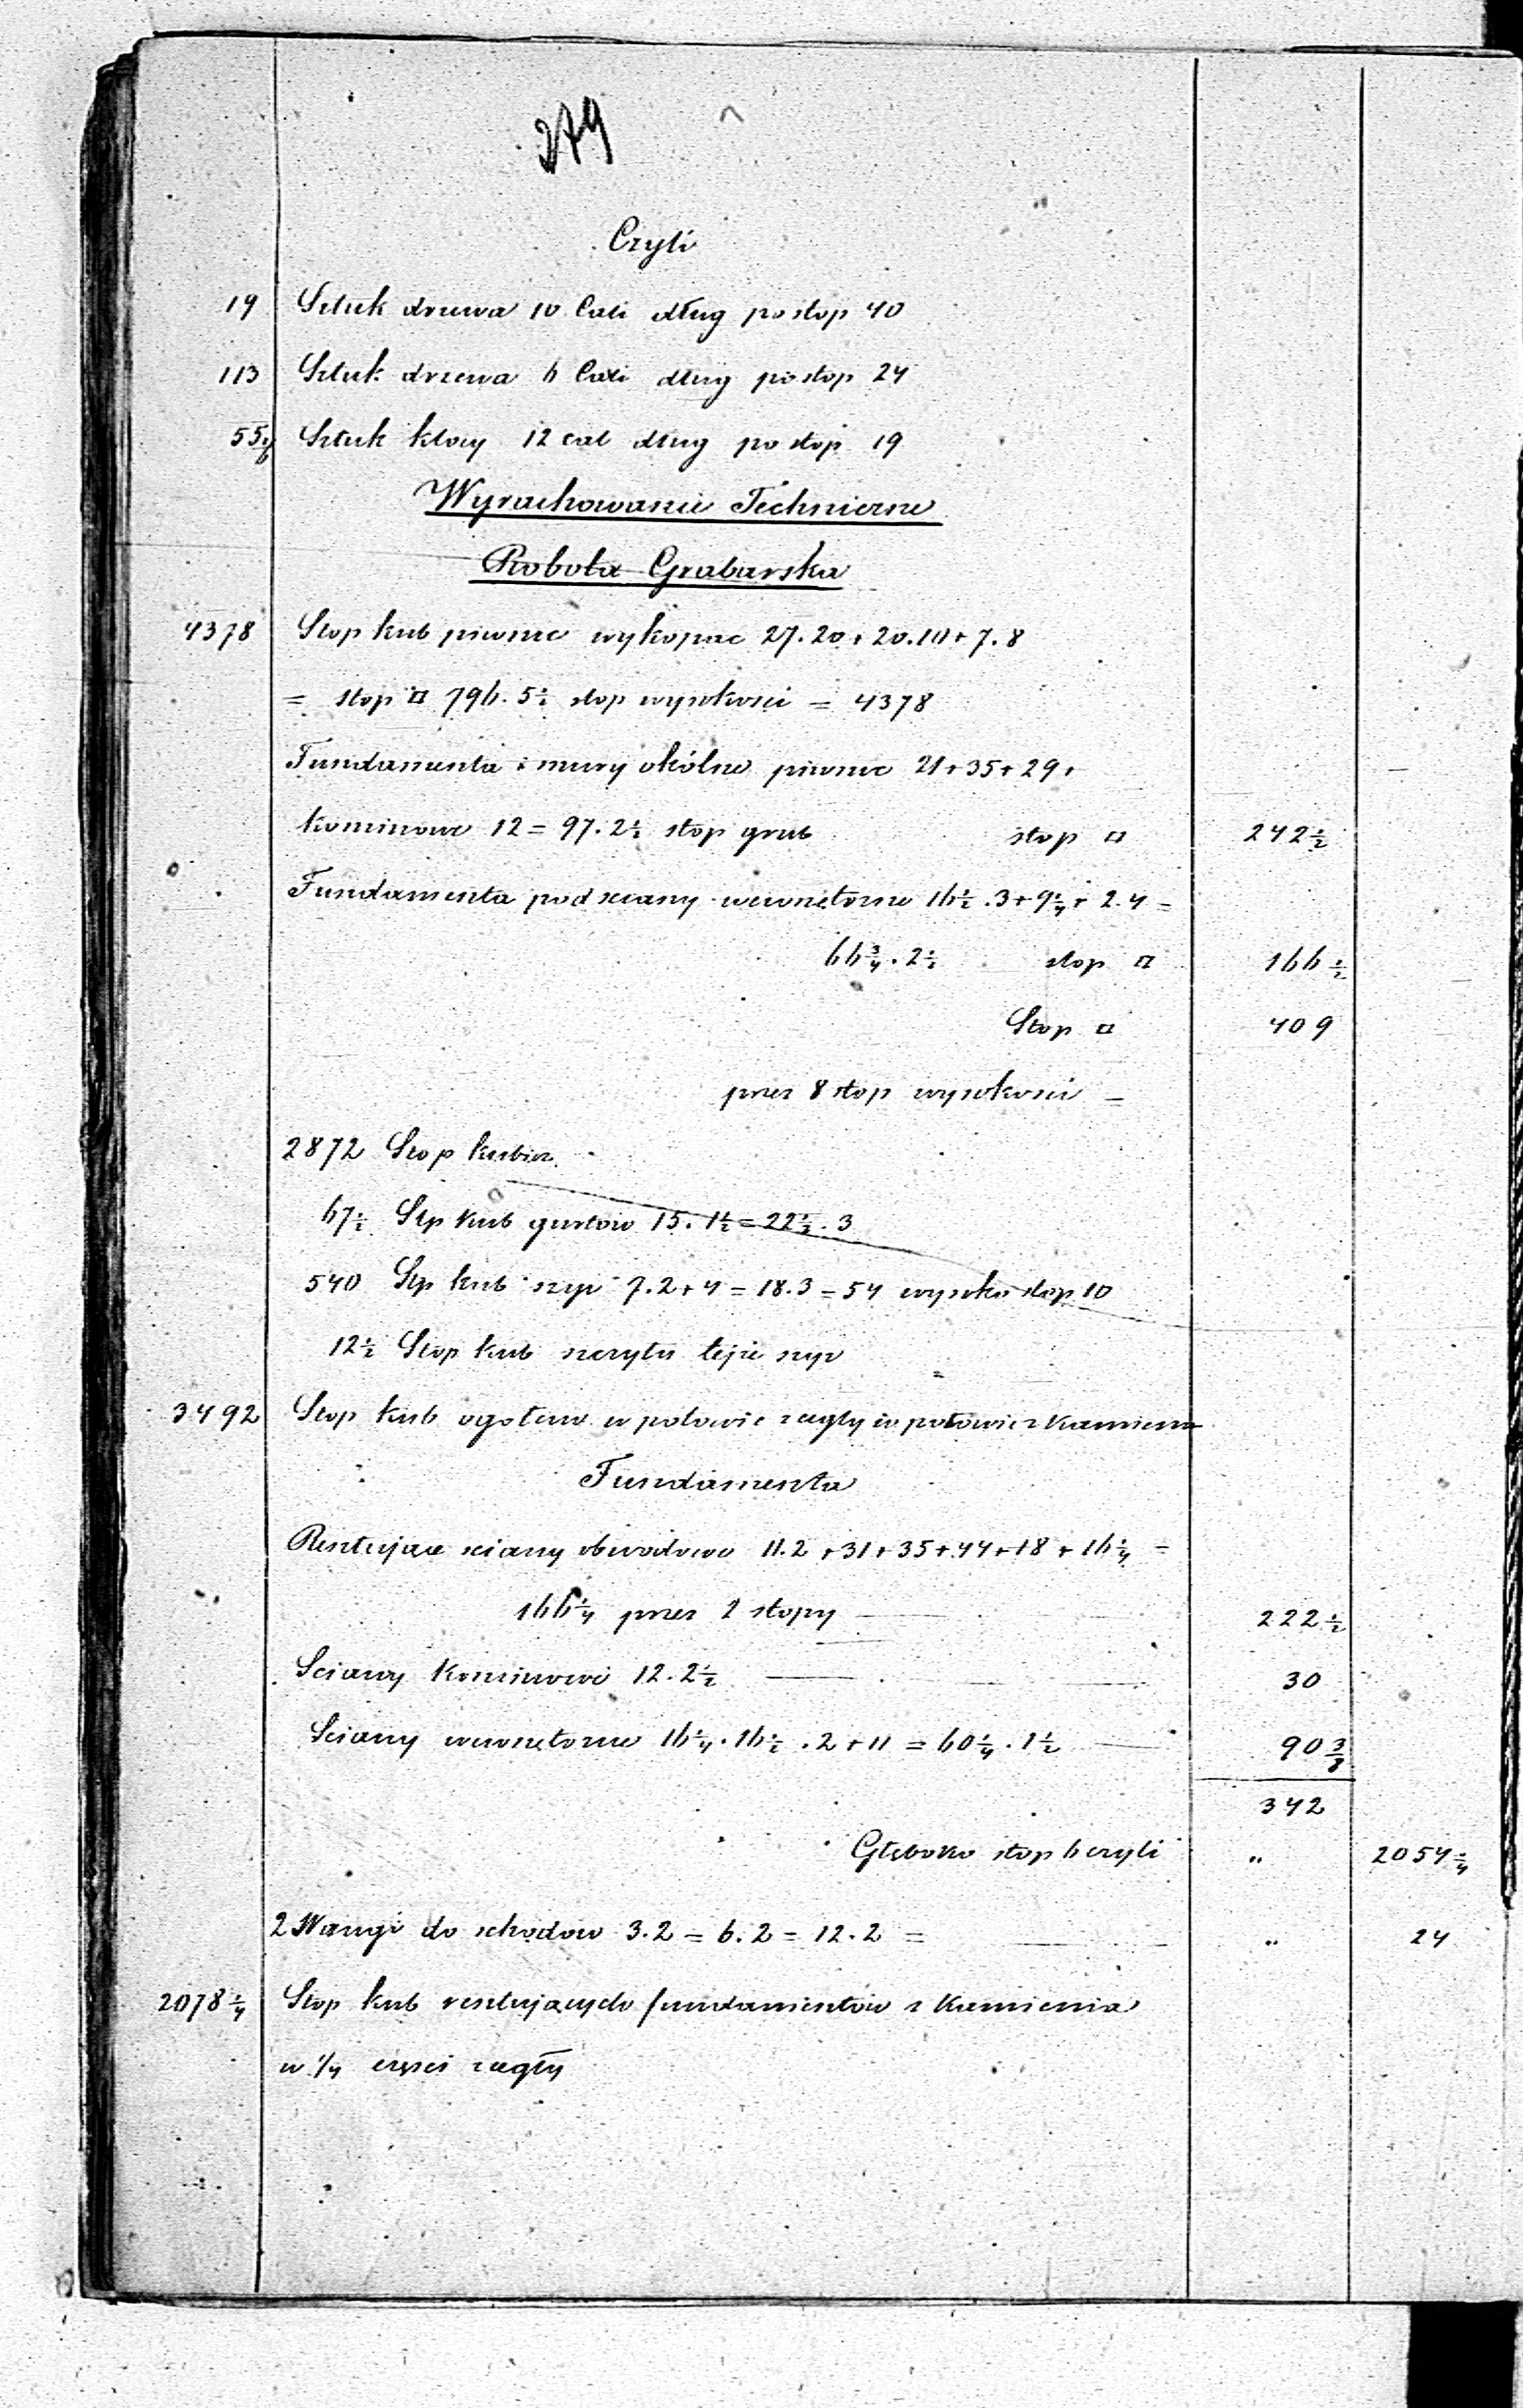 279
Czyli
19 Sztuk drzewa 10 Cali dług po stop 40
113 Sztuk drzewa 6 Cali dług po stop 24
55 1/6 Sztuk klocy 12 cal dług po stop 19
Wyrachowanie Techniczne
Robota Grabarska
4378 Stop kub piwnic wykopac 27.20 + 20.10 + 7.8
= stop □ 796. 5½ stop wysokosci = 4378
Fundamenta i mury okólne piwnic 21 + 35 + 29 +
kominowe 12 = 97. 2½ stop grub stop □ 242½
Fundamenta pod sciany wewnetorzne 16½ . 3 + 9¼ + 2.4 =
66¾ . 2½ stop □ 166½
Stop □ 409
przez 8 stop wysokosci =
2872 Stop kubicz.
67½ Stp kub gurtow 15. 1½ = 22½ . 3
540 Stp kub szyi 7.2 + 4 = 18.3 = 54 wysoko stop 10
12½ Stop kub szczytu tejże szyi
3492 Stop kub ogołem w połowie cegły i w połowie z kamieni
Fundamenta
Resztujące sciany obwodowe 11.2 + 31 + 35 + 44 + 18 + 16¼ =
166¼ przez 2 stopy 222½
Sciany Kominowe 12. 2½ 30
Sciany wewnetorzne 16¼ . 16½ . 2 + 11 = 60¼ . 1½ 90⅜
342
Głęboko stop 6 czyli „ 2054¼
2 Wangi do schodow 3.2 = 6.2 = 12.2 = „ 24
2078¼ Stop kub resztujących fundamentów z Kamienia
w 1/4 częsci cegły